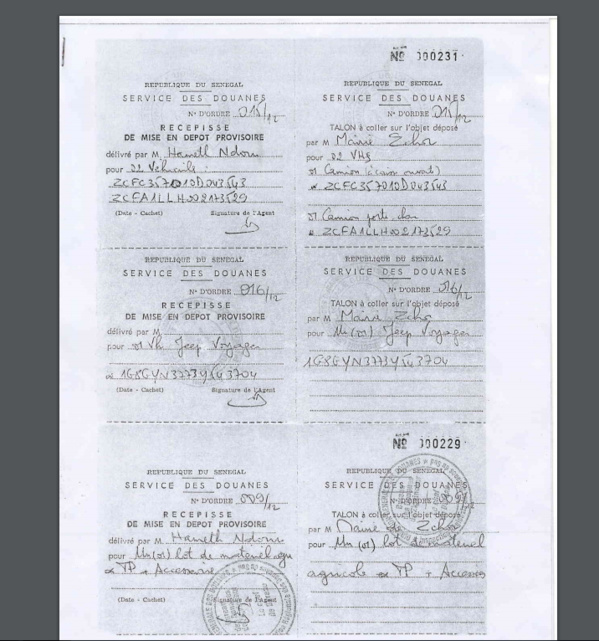 Nº 000231
REPUBLIQUE DU SENEGAL
SERVICE DES DOUANES
N° D'ORDRE 015/12
RECEPISSE
DE MISE EN DEPOT PROVISOIRE
délivré par M Hameth Ndom
pour 02 Véhicules
ZCFC357010D043543
ZCFA1LLH002173529
(Date - Cachet) Signature de l'Agent
REPUBLIQUE DU SENEGAL
SERVICE DES DOUANES
N° D'ORDRE 015/12
TALON à coller sur l'objet déposé
par M Mairie
pour 02 VHs
01 Camion
ZCFC357010D043543
01 Camion porte char
ZCFA1LLH002173529
REPUBLIQUE DU SENEGAL
SERVICE DES DOUANES
N° D'ORDRE 016/12
RECEPISSE
DE MISE EN DEPOT PROVISOIRE
délivré par M
pour 01 Vh Jeep Voyager
1G8GYN3773Y543704
(Date - Cachet) Signature de l'Agent
REPUBLIQUE DU SENEGAL
SERVICE DES DOUANES
N° D'ORDRE 016/12
TALON à coller sur l'objet déposé
par M Mairie
pour Un (01) Jeep Voyager
1G8GYN3773Y543704
Nº 000229
REPUBLIQUE DU SENEGAL
SERVICE DES DOUANES
N° D'ORDRE 009/12
RECEPISSE
DE MISE EN DEPOT PROVISOIRE
délivré par M Hameth Ndom
pour Un (01) lot de materiel agri
TP + Accessoire
(Date - Cachet) Signature de l'Agent
REPUBLIQUE DU SENEGAL
SERVICE DES DOUANES
N° D'ORDRE 009
TALON à coller sur l'objet déposé
par M Mairie de
pour Un (01) lot de materiel
agricole TP + Access